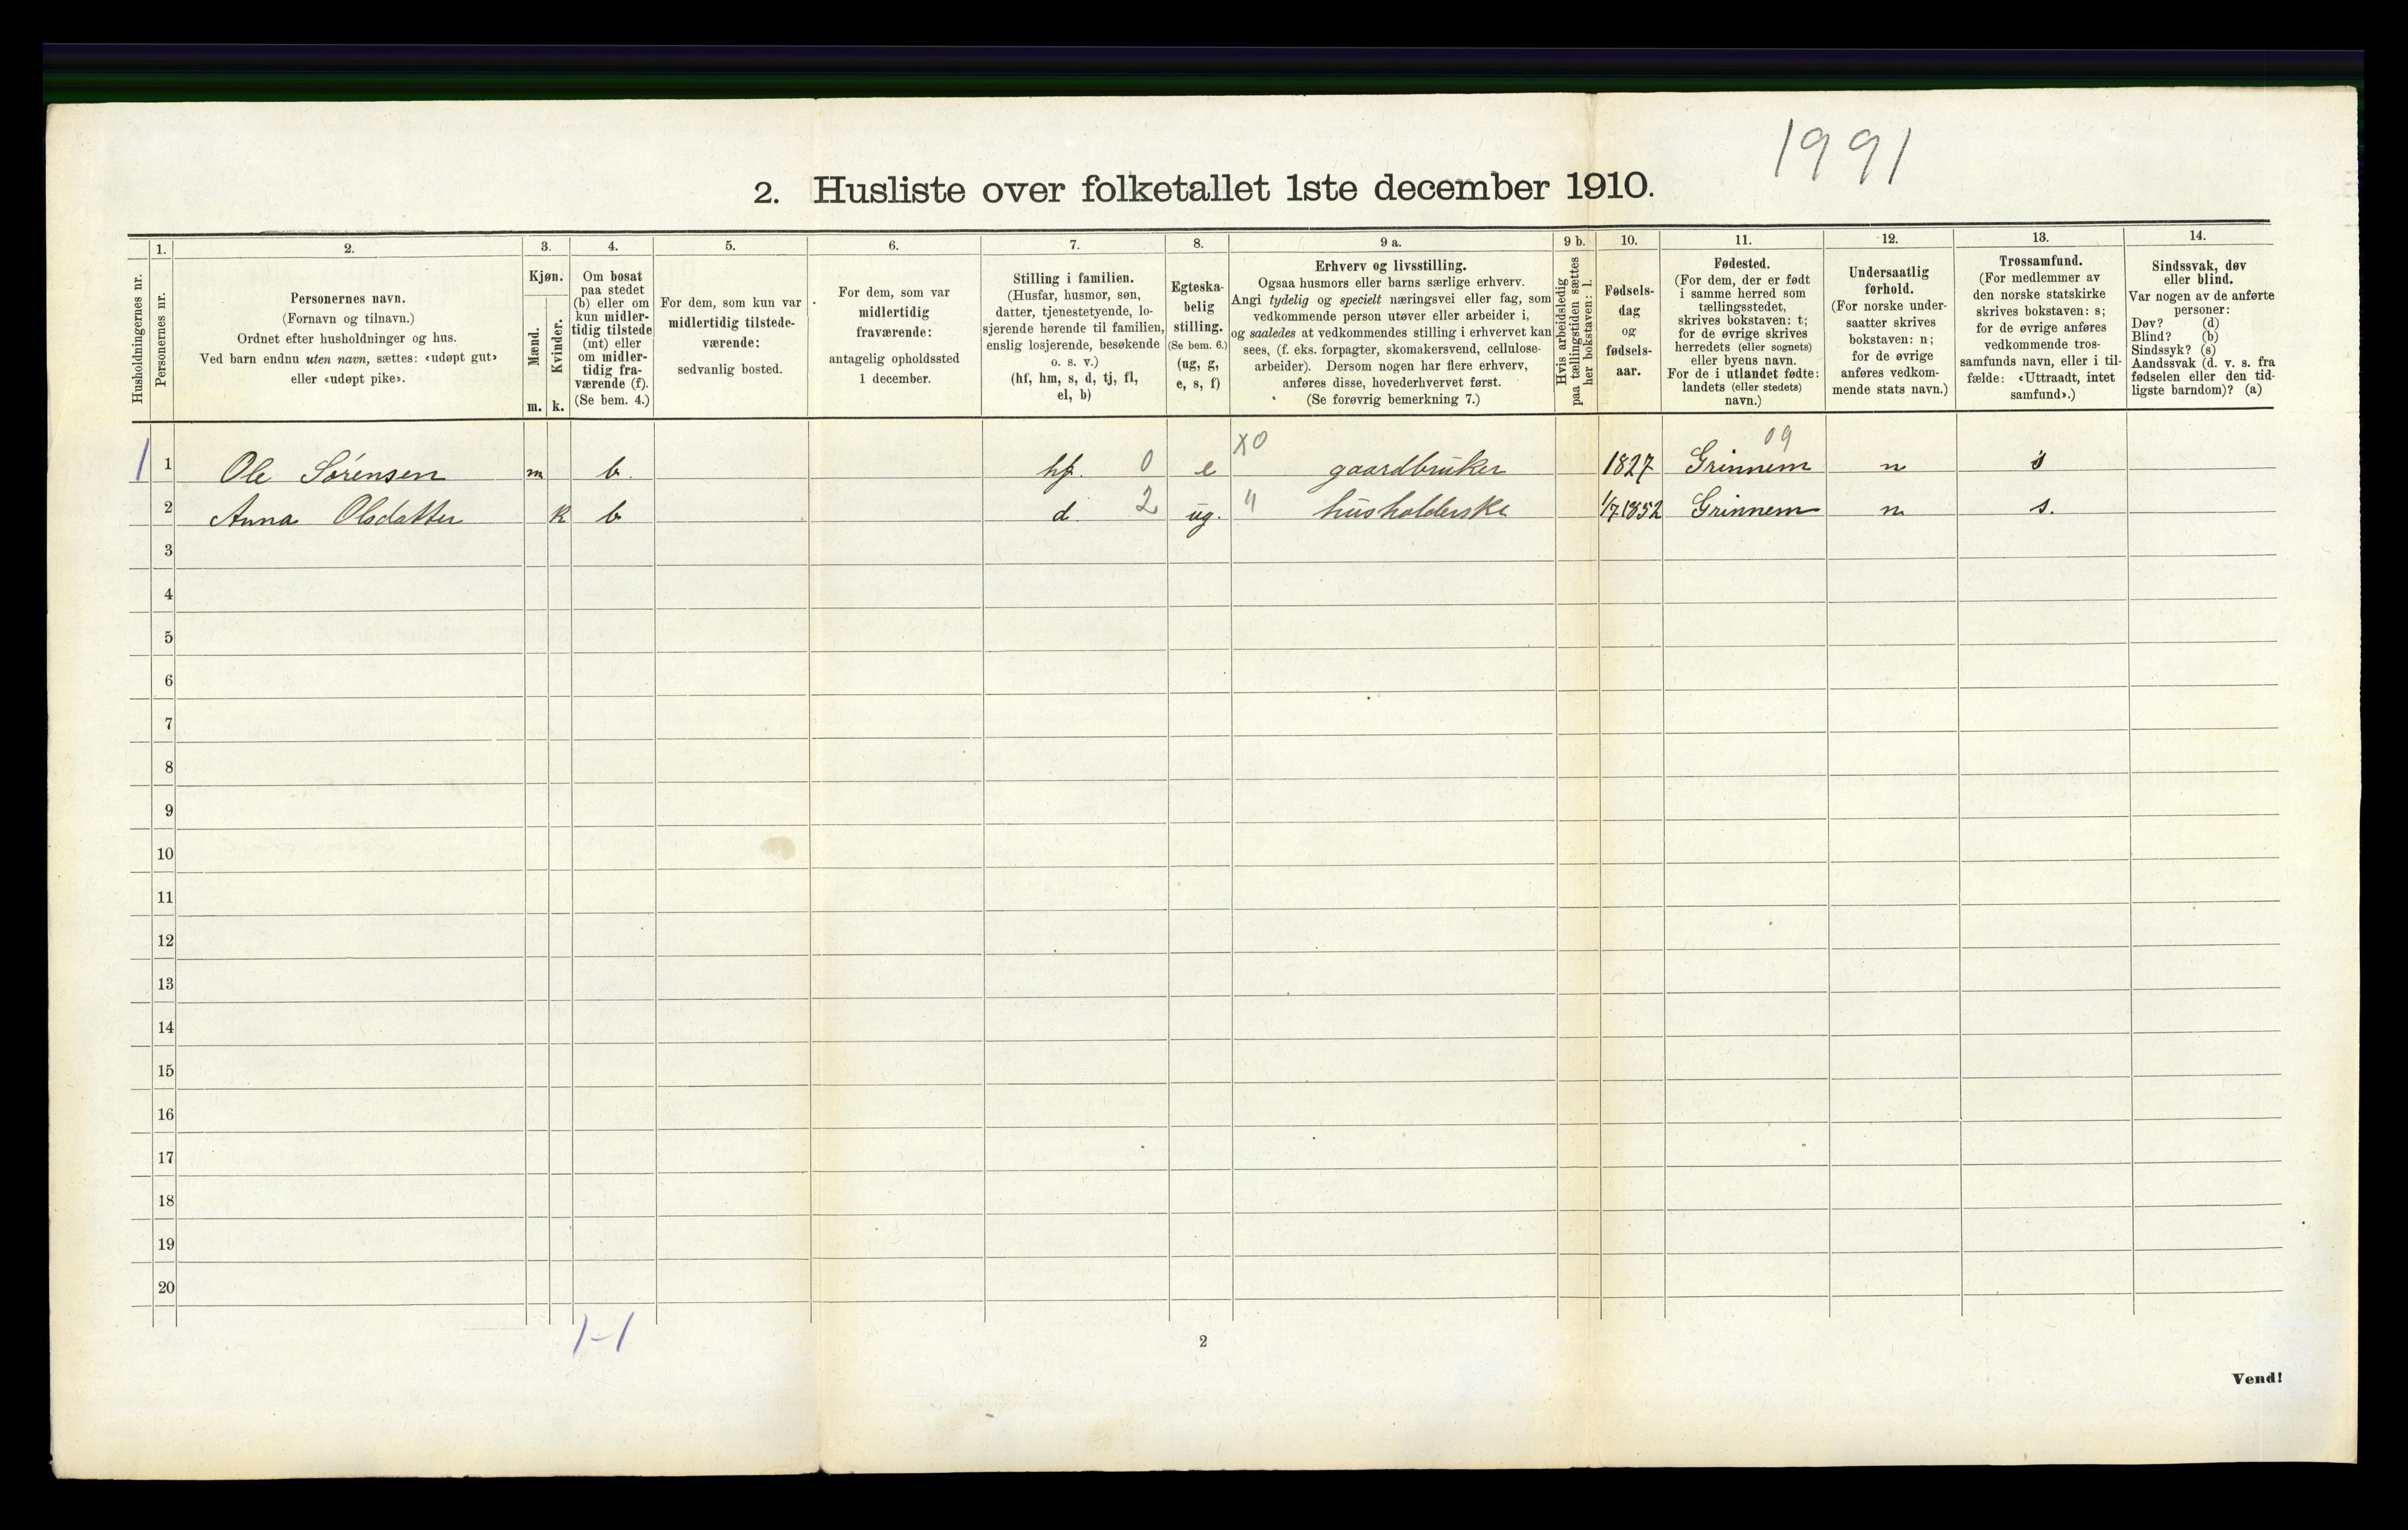 1991
2. Husliste over folketallet 1ste december 1910.
Husholdningernes nr.
1.
Personernes nr.
2.
Personernes navn.
(Fornavn og tilnavn.)
Ordnet efter husholdninger og hus.
Ved barn endnu uten navn, sættes: «udøpt gut»
eller «udøpt pike».
3.
Kjøn.
Mænd.
Kvinder.
m. k.
4.
Om bosat
paa stedet
(b) eller om
kun midler-
tidig tilstede
(mt) eller
om midler-
tidig fra-
værende (f).
(Se bem. 4.)
5.
For dem, som kun var
midlertidig tilstede-
værende:
sedvanlig bosted.
6.
For dem, som var
midlertidig
fraværende:
antagelig opholdssted
1 december.
7.
Stilling i familien.
(Husfar, husmor, søn,
datter, tjenestetyende, lo-
sjerende hørende til familien,
enslig losjerende, besøkende
o. s. v.)
(hf, hm, s, d, tj, fl,
el, b)
8.
Egteska-
belig
stilling.
(Se bem. 6.)
(ug, g,
e, s, f)
9 a.
Erhverv og livsstilling.
Ogsaa husmors eller barns særlige erhverv.
Angi tydelig og specielt næringsvei eller fag, som
vedkommende person utøver eller arbeider i,
og saaledes at vedkommendes stilling i erhvervet kan
sees, (f. eks. forpagter, skomakersvend, cellulose-
arbeider). Dersom nogen har flere erhverv,
anføres disse, hovederhvervet først.
(Se forøvrig bemerkning 7.)
9 b.
Hvis arbeidsledig
paa tællingstiden sættes
her bokstaven: l.
10.
Fødsels-
dag
og
fødsels-
aar.
11.
Fødested.
(For dem, der er født
i samme herred som
tællingsstedet,
skrives bokstaven: t;
for de øvrige skrives
herredets (eller sognets)
eller byens navn.
For de i utlandet fødte:
landets (eller stedets)
navn.)
12.
Undersaatlig
forhold.
(For norske under-
saatter skrives
bokstaven: n;
for de øvrige
anføres vedkom-
mende stats navn.)
13.
Trossamfund.
(For medlemmer av
den norske statskirke
skrives bokstaven: s;
for de øvrige anføres
vedkommende tros-
samfunds navn, eller i til-
fælde: «Uttraadt, intet
samfund».)
14.
Sindssvak, døv
eller blind.
Var nogen av de anførte
personer:
Døv? (d)
Blind? (b)
Sindssyk? (s)
Aandssvak (d. v. s. fra
fødselen eller den tid-
ligste barndom)? (a)
X0 09
1 1 Ole Sørensen m b. hf. 0 e gaardbruker 1827 Grinnem n s
2 Anna Olsdatter k b d. 2 ug. " husholderske 1/7 1852 Grinnem n s.
3
4
5
6
7
8
9
10
11
12
13
14
15
16
17
18
19
20
1-1
2
Vend!